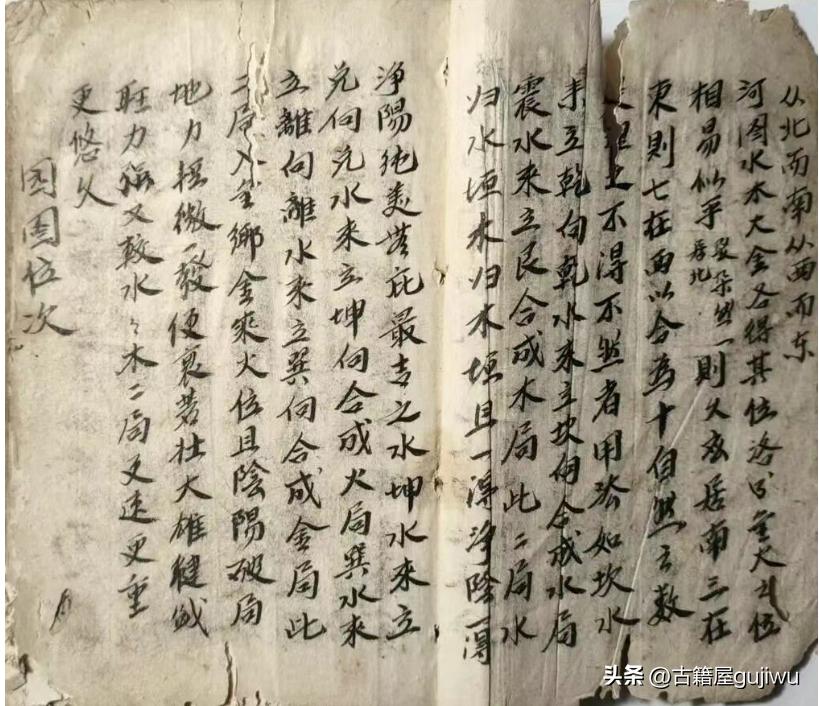 从北而南从西而东
河图水木火金各得其位洛书金火之位
相易似乎
一則火玄居南三在
東則七在西以合為十自然之数
之不得不然者用法如坎水
来立乾向乾水来立坎向合成水局
震水来立艮合成木局此二局水
归水垣木归木垣且一得净陰一得
净陽純美
庇最吉之水坤水来立
兑向兑水来立坤向合成火局巽水来
立離向離水来立巽向合成金局此
二局火入金鄉金乘火位且陰陽破局
地力
微一發便衰若壯大雄健
旺力
又較水々木二局更速更重
更悠久
圖位次
头条@古籍屋gujiwu